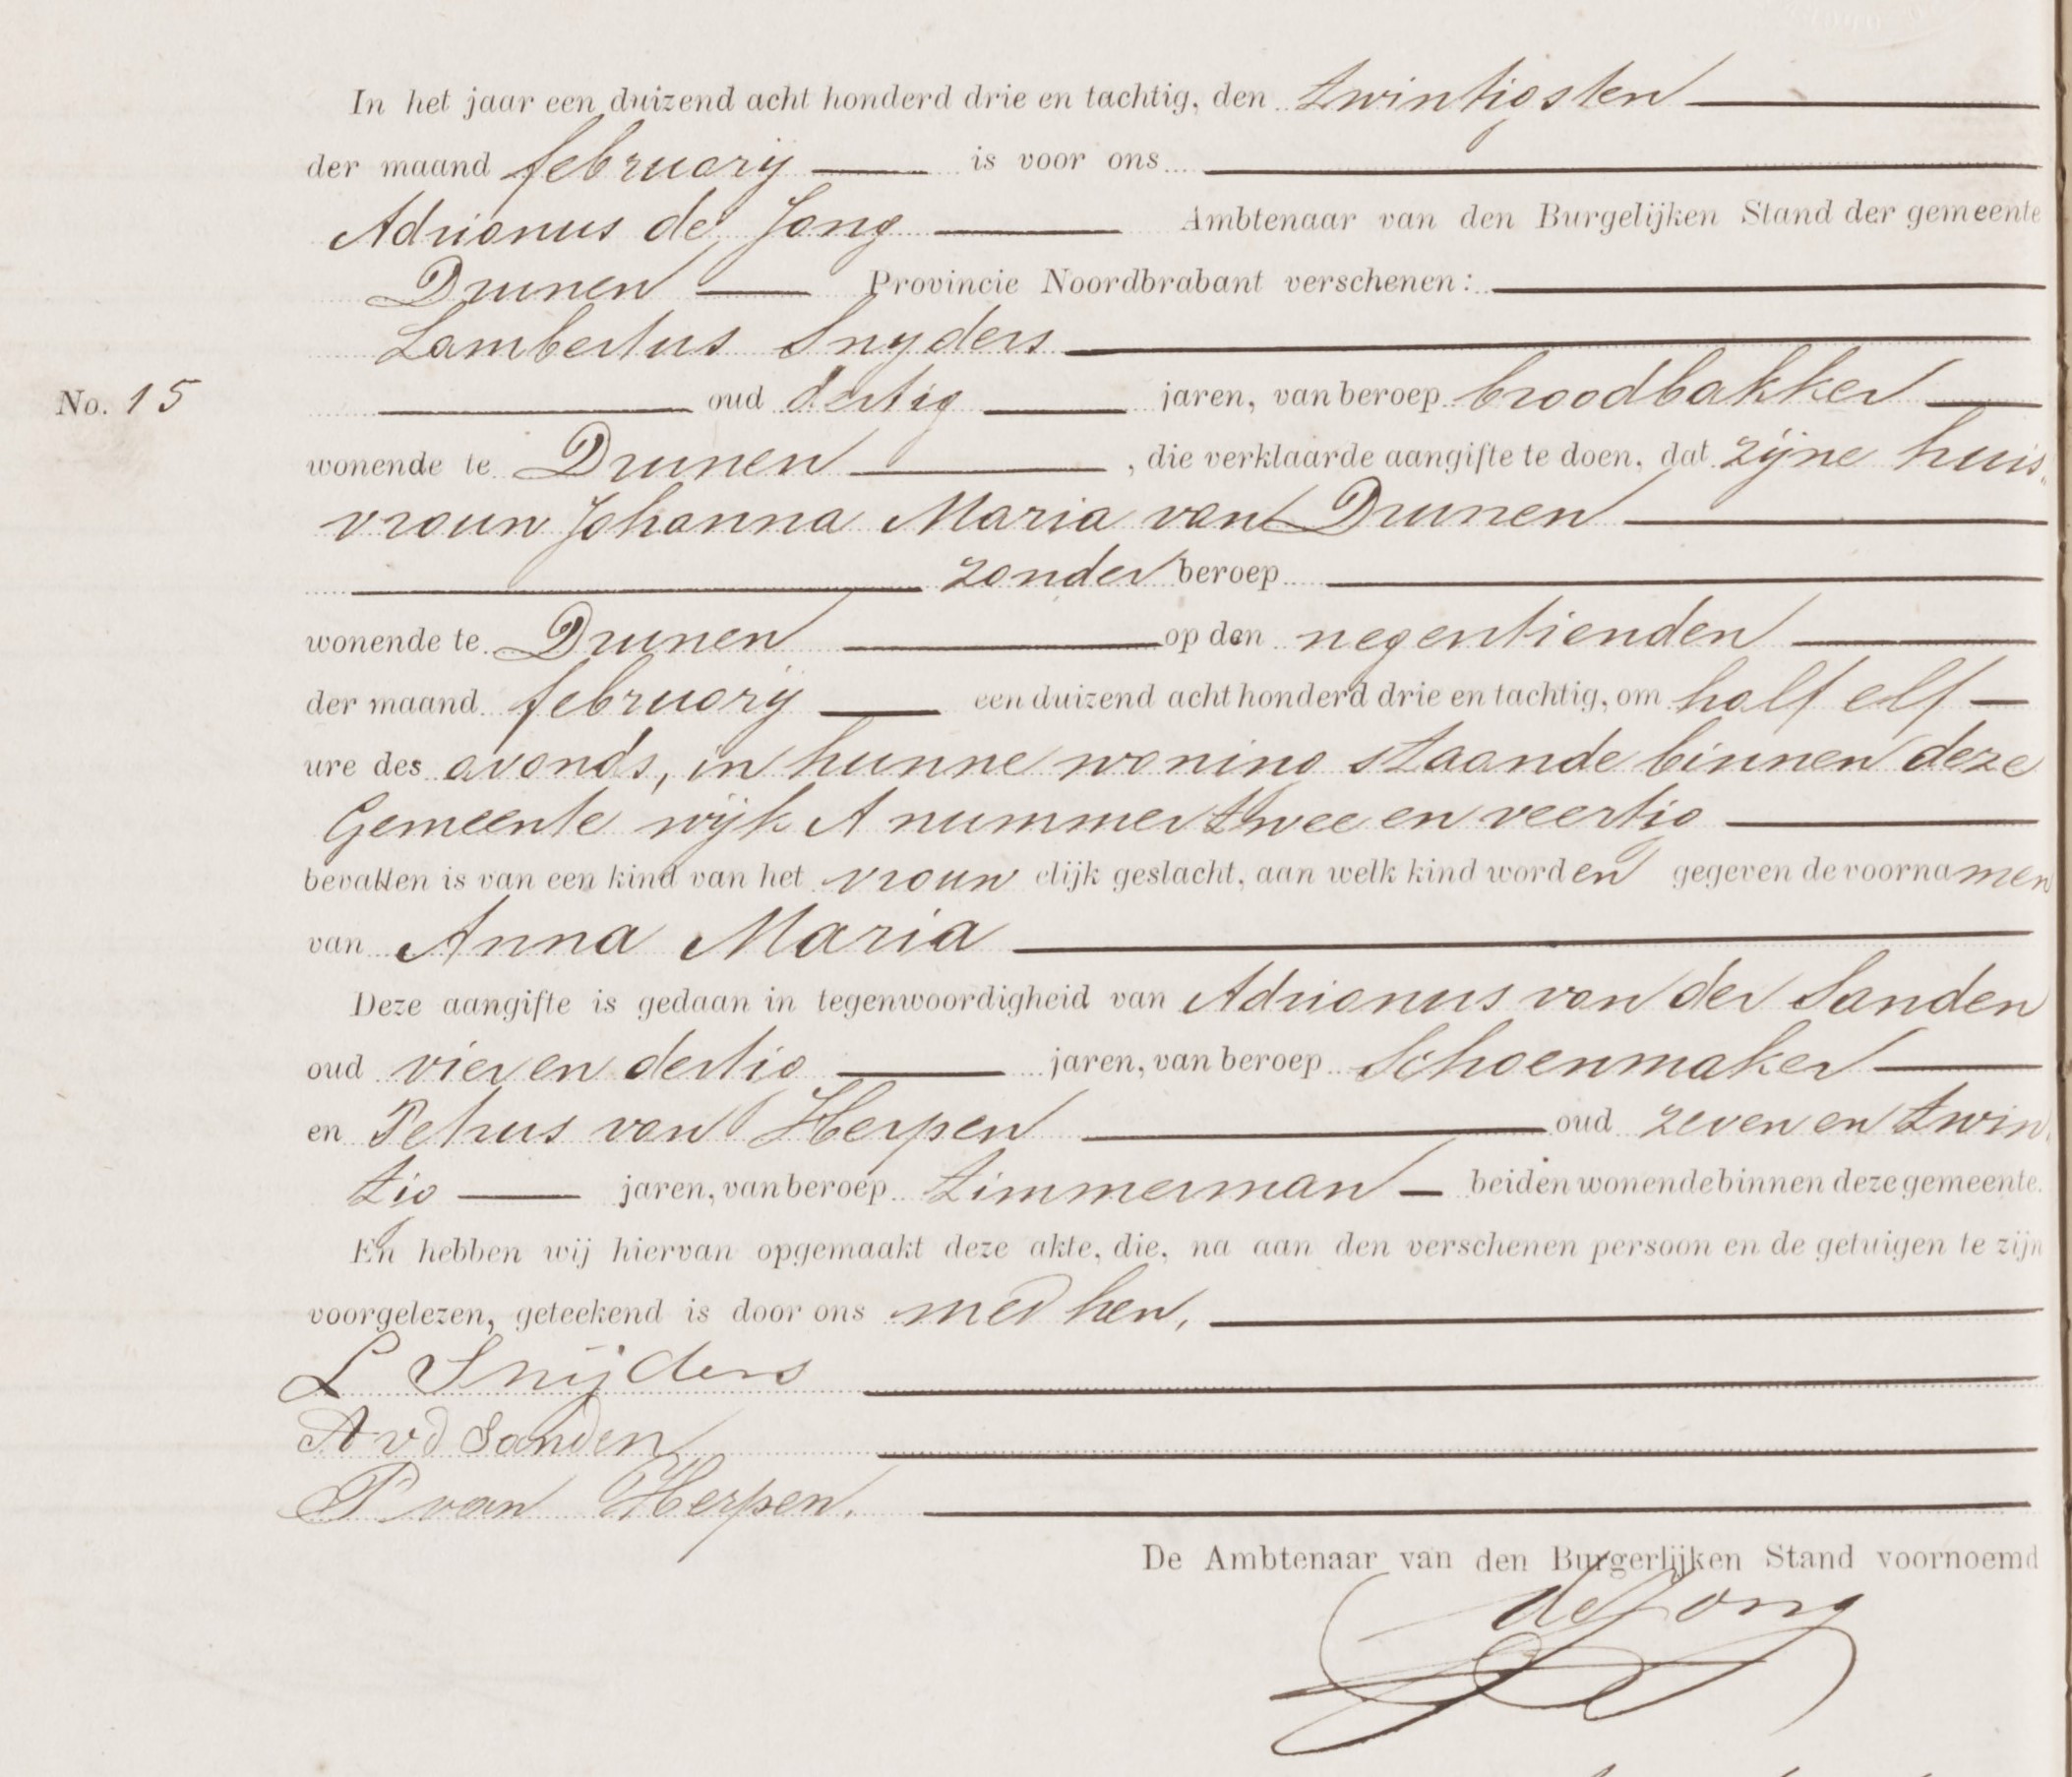 In het jaar een duizend acht honderd drie en tachtig, den twintigsten
der maand february is voor ons
Adrianus de Jong Ambtenaar van den Burgelijken Stand der gemeente
Drunen Provincie Noordbrabant verschenen:
Lambertus Snyders
No. 15 oud dertig jaren, van beroep broodbakker
wonende te Drunen, die verklaarde aangifte te doen, dat zijne huis
vrouw Johanna Maria van Drunen
zonder beroep
wonende te Drunen op den negentienden
der maand february een duizend acht honderd drie en tachtig, om half elf
ure des avonds, in hunne woning staande binnen deze
Gemeente wijk A nummer twee en veertig
bevallen is van een kind van het vrouwelijk geslacht, aan welk kind worden gegeven de voornamen
van Anna Maria
Deze aangifte is gedaan in tegenwoordigheid van Adrianus van der Sanden
oud vier en dertig jaren, van beroep Schoenmaker
en Petrus van Herpen oud zeven en twin
tig jaren, van beroep timmerman beiden wonende binnen deze gemeente.
En hebben wij hiervan opgemaakt deze akte, die, na aan den verschenen persoon en de getuigen te zijn
voorgelezen, geteekend is door ons met hen,
L Snijders
A vd Sanden
P van Herpen.
De Ambtenaar van den Burgerlijken Stand voornoemd
de Jong